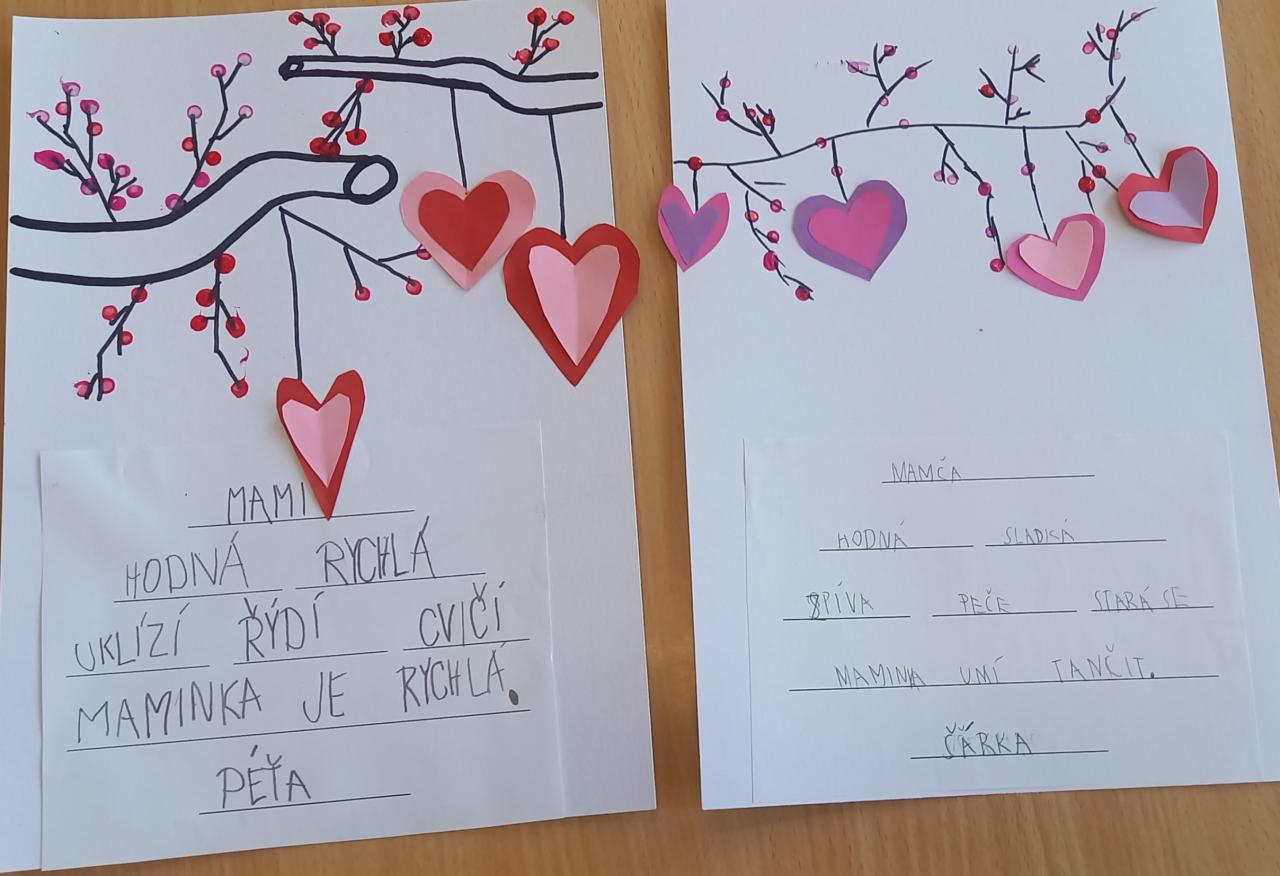 MAMI
HODNÁ RYCHLÁ
UKLÍZÍ ŘÝDÍ CVIČÍ
MAMINKA JE RYCHLÁ.
PÉŤA
MAMČA
HODNÁ SLADKÁ
SPÍVA PEČE STARÁ SE
MAMINA UMÍ TANČIT.
ČÁRKA